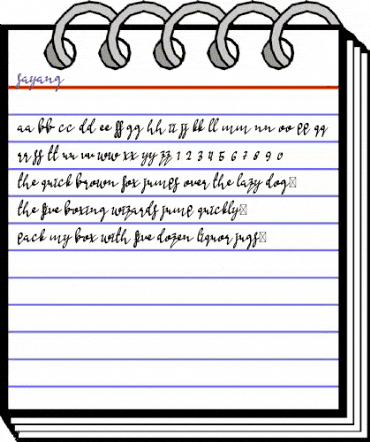 sayang
aa bb cc dd ee ff gg hh ii jj kk ll mm nn oo pp qq
rr ss tt uu vv ww xx yy zz 1 2 3 4 5 6 7 8 9 0
the quick brown fox jumps over the lazy dog
the five boxing wizards jump quickly
pack my box with five dozen liquor jugs